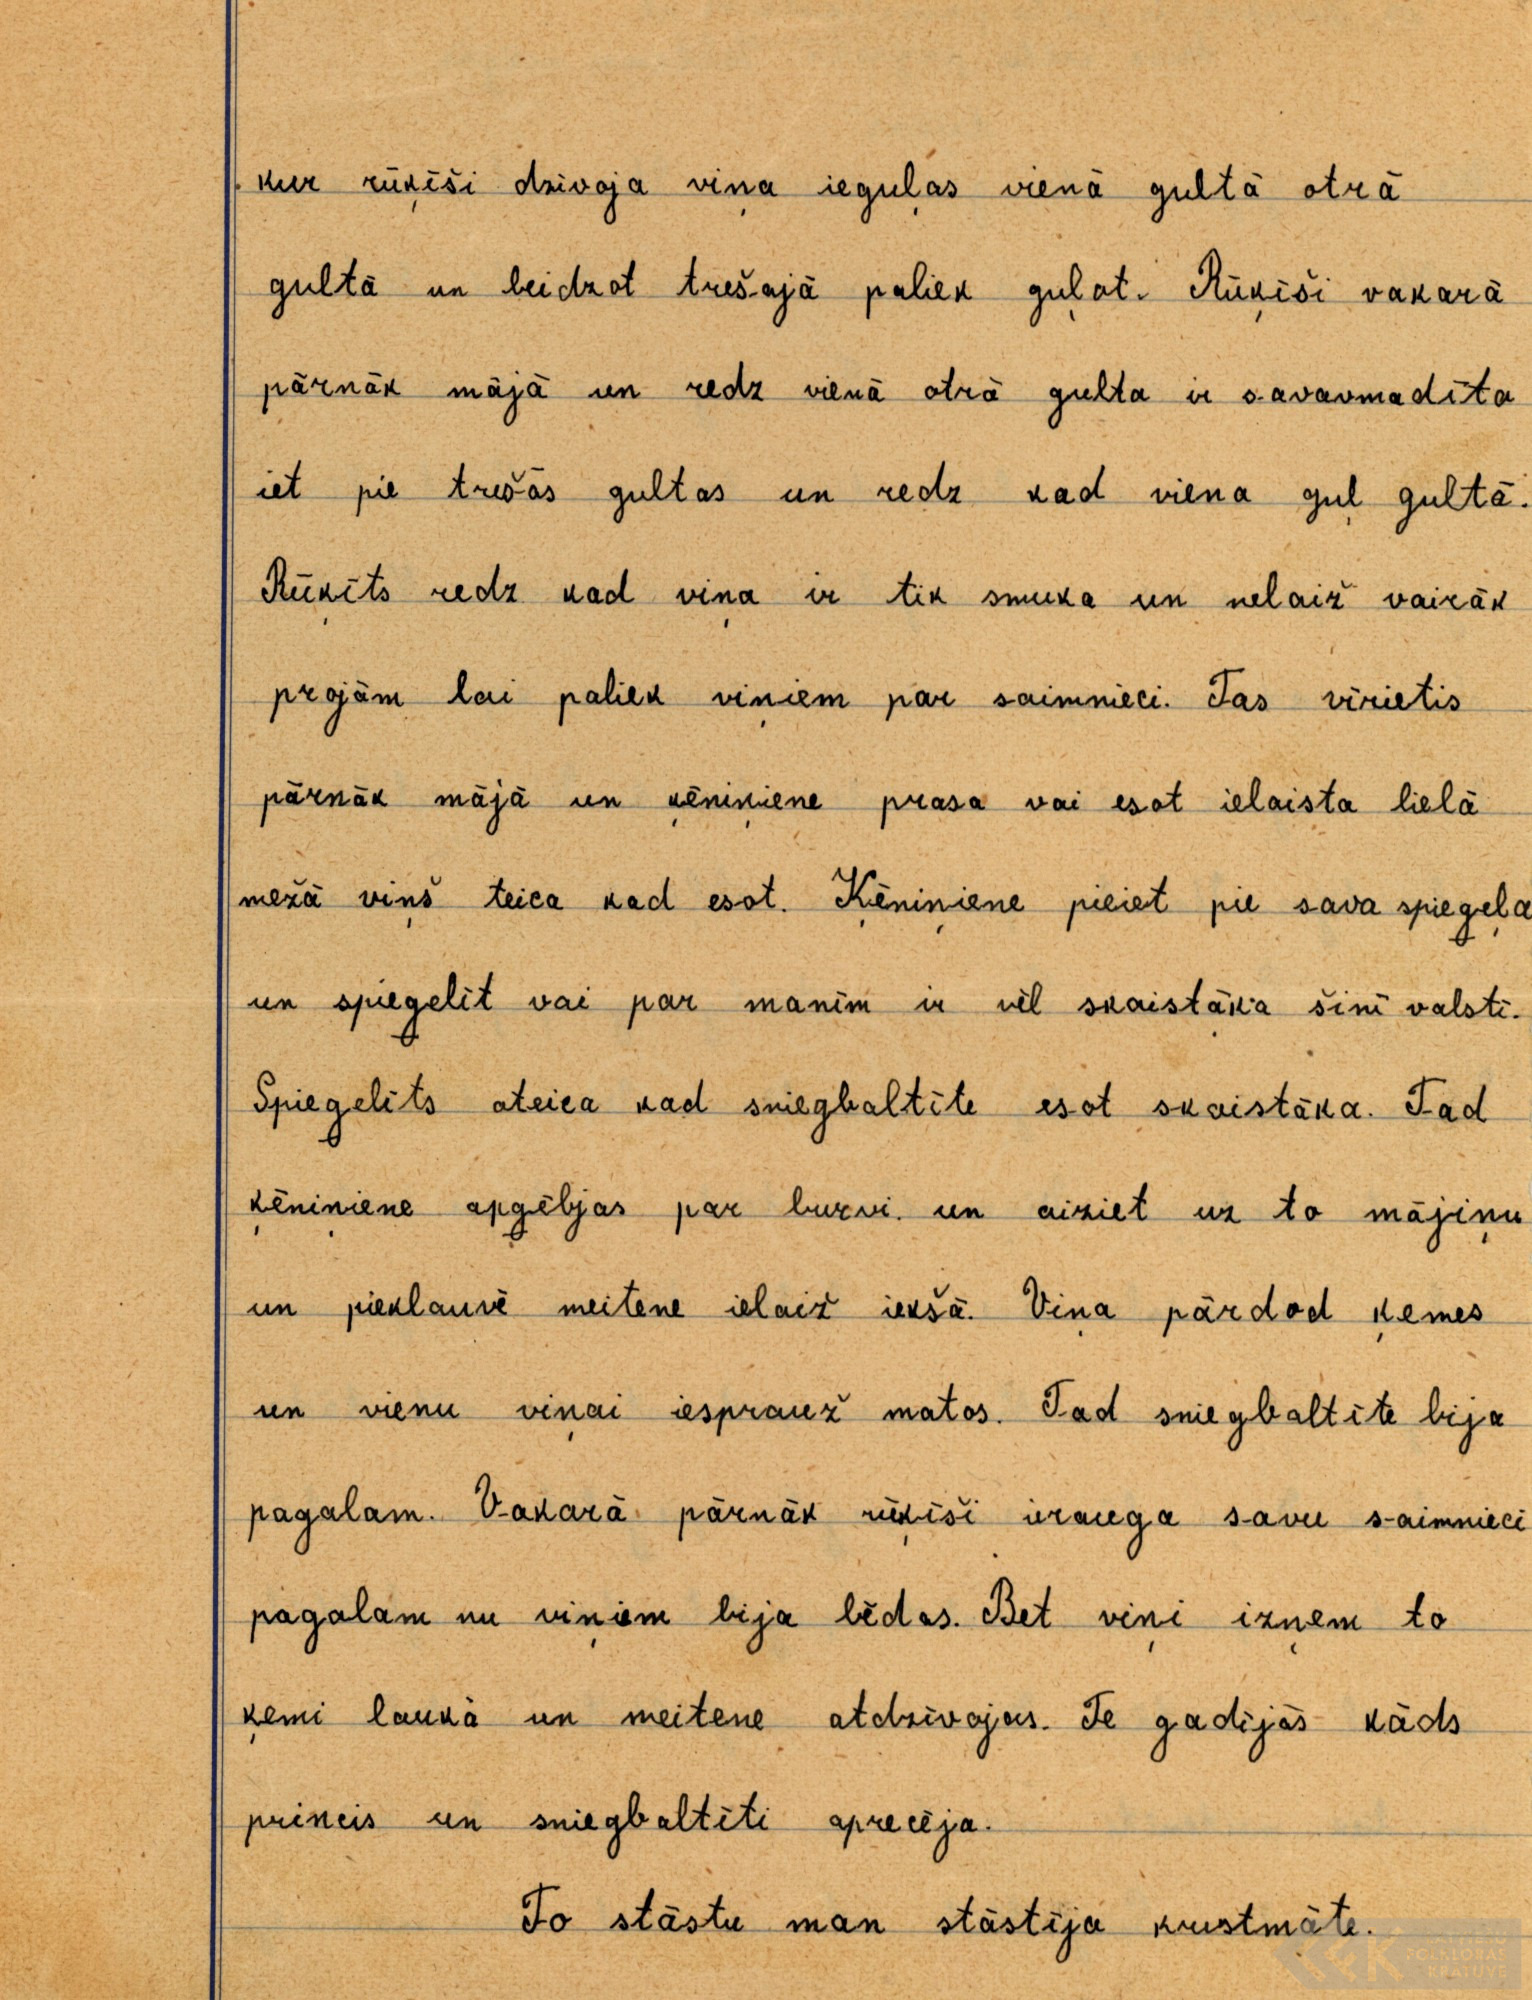 kur rūķīši dzīvoja viņa ieguļas vienā gultā otrā
gultā un beidzot trešajā paliek guļot. Rūķīši vakarā
pārnāk mājā un redz vienā otrā gulta ir savavmadīta
iet pie trešās gultas un redz kad viena guļ gultā.
Rūķīts redz kad viņa ir tik smuka un nelaiž vairāk
projām lai paliek viņiem par saimnieci. Tas vīrietis
pārnāk mājā un ķēniņiene prasa vai esot ielaista lielā
mežā viņš teica kad esot. Ķēniņiene pieiet pie sava spiegeļa
un spiegelīt vai par manīm ir vēl skaistāka šinī valstī.
Spiegelīts ateica kad sniegbaltīte esot skaistāka. Tad
ķēniņiene apgēbjas par burvi un aiziet uz to mājiņu
un pieklauvē meitene ielaiž iekšā. Viņa pārdod ķemes
un vienu viņai iesprauž matos. Tad sniegbaltīte bija
pagalam. Vakarā pārnāk rūķīši ierauga savu saimnieci
pagalam nu viņiem bija bēdas. Bet viņi izņem to
ķemi laukā un meitene atdzīvojas. Te gadījās kāds
princis un sniegbaltīti aprecēja.
To stāstu man stāstīja krustmāte.
FOLKLORAS
KRĀTUVE